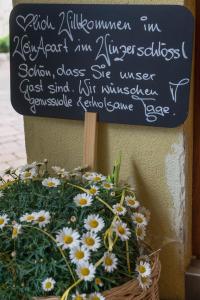 ♥lich Willkommen im
WeinApart im Winzerschlössl
Schön, dass Sie unser
Gast sind. Wir wünschen
genussvolle & erholsame Tage.